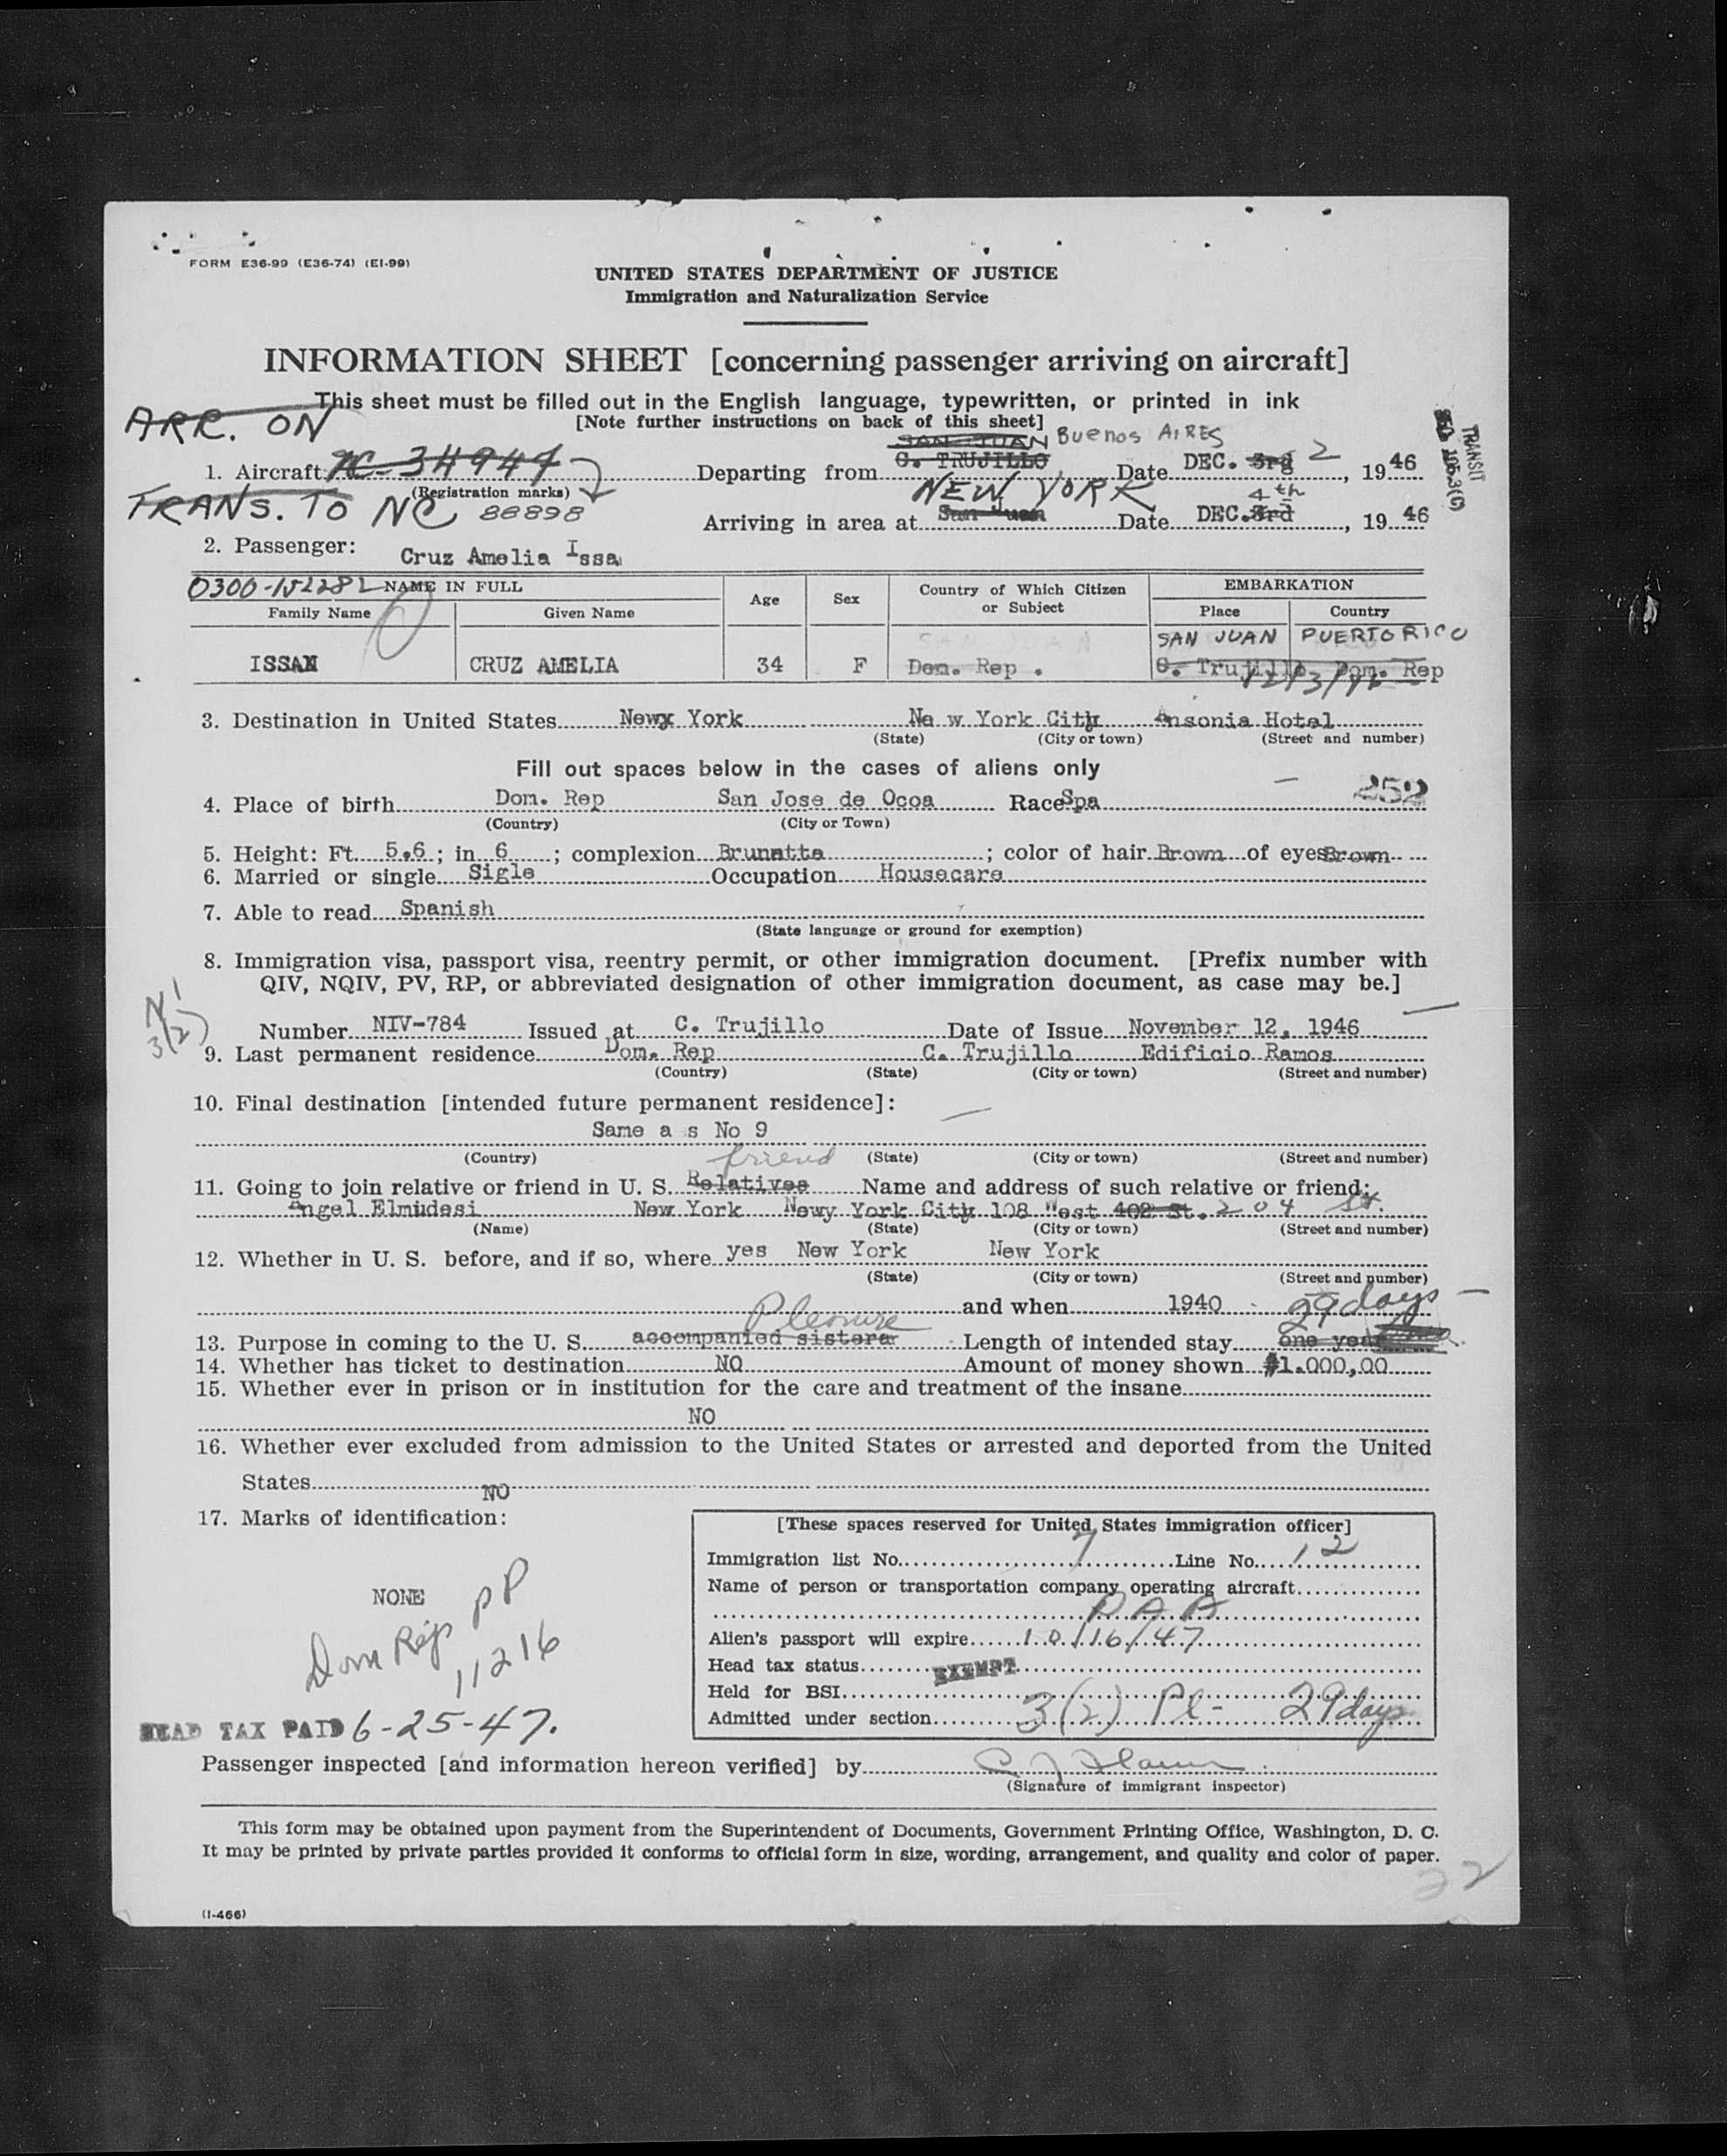 FORM E36-99 (E36-74) (E1-99)
UNITED STATES DEPARTMENT OF JUSTICE
Immigration and Naturalization Service
INFORMATION SHEET [concerning passenger arriving on aircraft]
This sheet must be filled out in the English language, typewritten, or printed in ink
ARR. ON
[Note further instructions on back of this sheet]
SAN JUAN Buenos AIRES
1. Aircraft NC-34944 Departing from C. TRUJILLO, Date DEC. 3rd 2, 19 46
(Registration marks)
TRANSIT
105.3(c)
TRANS. TO NC 88898
NEW YORK 4th
Arriving in area at San Juan Date DEC. 3rd, 19 46
2. Passenger: Cruz Amelia Issa
0300-152282 NAME IN FULL Age Sex Country of Which Citizen or Subject EMBARKATION
Family Name Given Name Place Country
SAN JUAN PUERTO RICO
ISSAN CRUZ AMELIA 34 F Dom. Rep . C. Trujillo Dom. Rep
12/3/46
3. Destination in United States Newx York Ne w York City Ansonia Hotel
(State) (City or town) (Street and number)
Fill out spaces below in the cases of aliens only
252
4. Place of birth Dom. Rep San Jose de Ocoa Race Spa
(Country) (City or Town)
5. Height: Ft. 5.6 ; in 6 ; complexion Brunatte ; color of hair Brown of eyes Brown
6. Married or single Sigle Occupation Housecare
7. Able to read Spanish
(State language or ground for exemption)
8. Immigration visa, passport visa, reentry permit, or other immigration document. [Prefix number with
QIV, NQIV, PV, RP, or abbreviated designation of other immigration document, as case may be.]
3(2)
Number NIV-784 Issued at C. Trujillo Date of Issue November 12, 1946
9. Last permanent residence Dom. Rep C. Trujillo Edificio Ramos
(Country) (State) (City or town) (Street and number)
10. Final destination [intended future permanent residence]:
Same a s No 9
(Country) (State) (City or town) (Street and number)
friend
11. Going to join relative or friend in U. S. Relatives Name and address of such relative or friend:
Angel Elmudesi New York Newy York City 108 West 402 St. 204 St.
(Name) (State) (City or town) (Street and number)
12. Whether in U. S. before, and if so, where yes New York New York
(State) (City or town) (Street and number)
and when 1940 29 days
Pleasure
13. Purpose in coming to the U. S. accompanied sisterer Length of intended stay one year
14. Whether has ticket to destination NO Amount of money shown $1.000,00
15. Whether ever in prison or in institution for the care and treatment of the insane
NO
16. Whether ever excluded from admission to the United States or arrested and deported from the United
States NO
17. Marks of identification:
NONE
Dom Rep PP
11216
HEAD TAX PAID 6-25-47.
[These spaces reserved for United States immigration officer]
Immigration list No. 7 Line No. 12
Name of person or transportation company operating aircraft
P A A
Alien's passport will expire 10/16/47
Head tax status EXEMPT
Held for BSI
Admitted under section 3(2) Pl- 29 days
Passenger inspected [and information hereon verified] by
(Signature of immigrant inspector)
This form may be obtained upon payment from the Superintendent of Documents, Government Printing Office, Washington, D. C.
It may be printed by private parties provided it conforms to official form in size, wording, arrangement, and quality and color of paper.
22
(I-466)